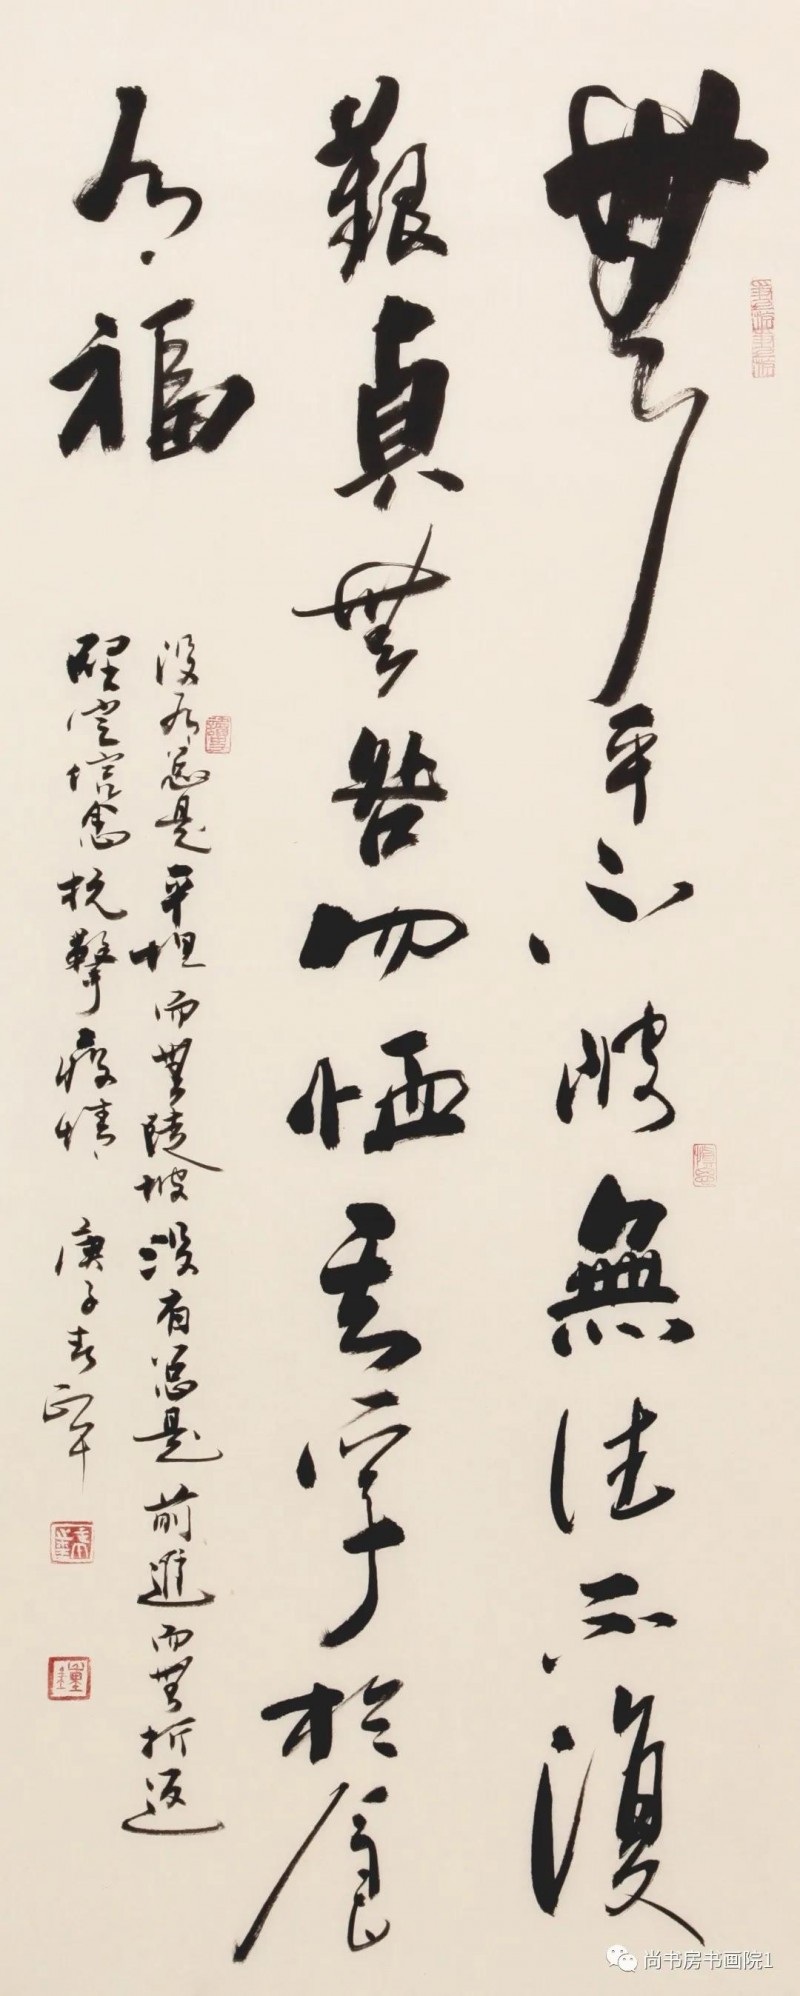 無平不陂無往不復
艱貞無咎勿恤其孚於食
有福
没有总是平坦而無陡坡没有总是前進而無折返
坚定信念抗擊疫情庚子春
尚书房书画院1